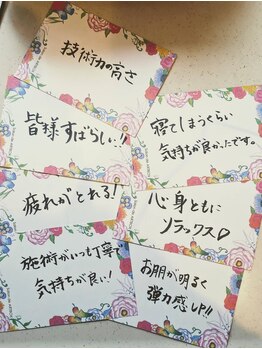 技術力の高さ
皆様すばらしい!!
寝てしまうくらい
気持ちが良かったです。
疲れがとれる!
心身ともに
リラックス♡
施術がいつも丁寧
気持ちが良い!
お肌が明るく
弾力感UP!!